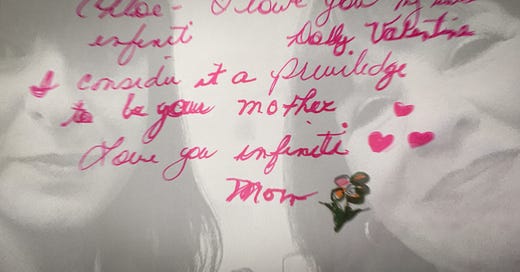 Chloe- I love you my
infiniti Dolly Valentine
I consider it a priviledge
to be your mother.
Love you infiniti
Mom